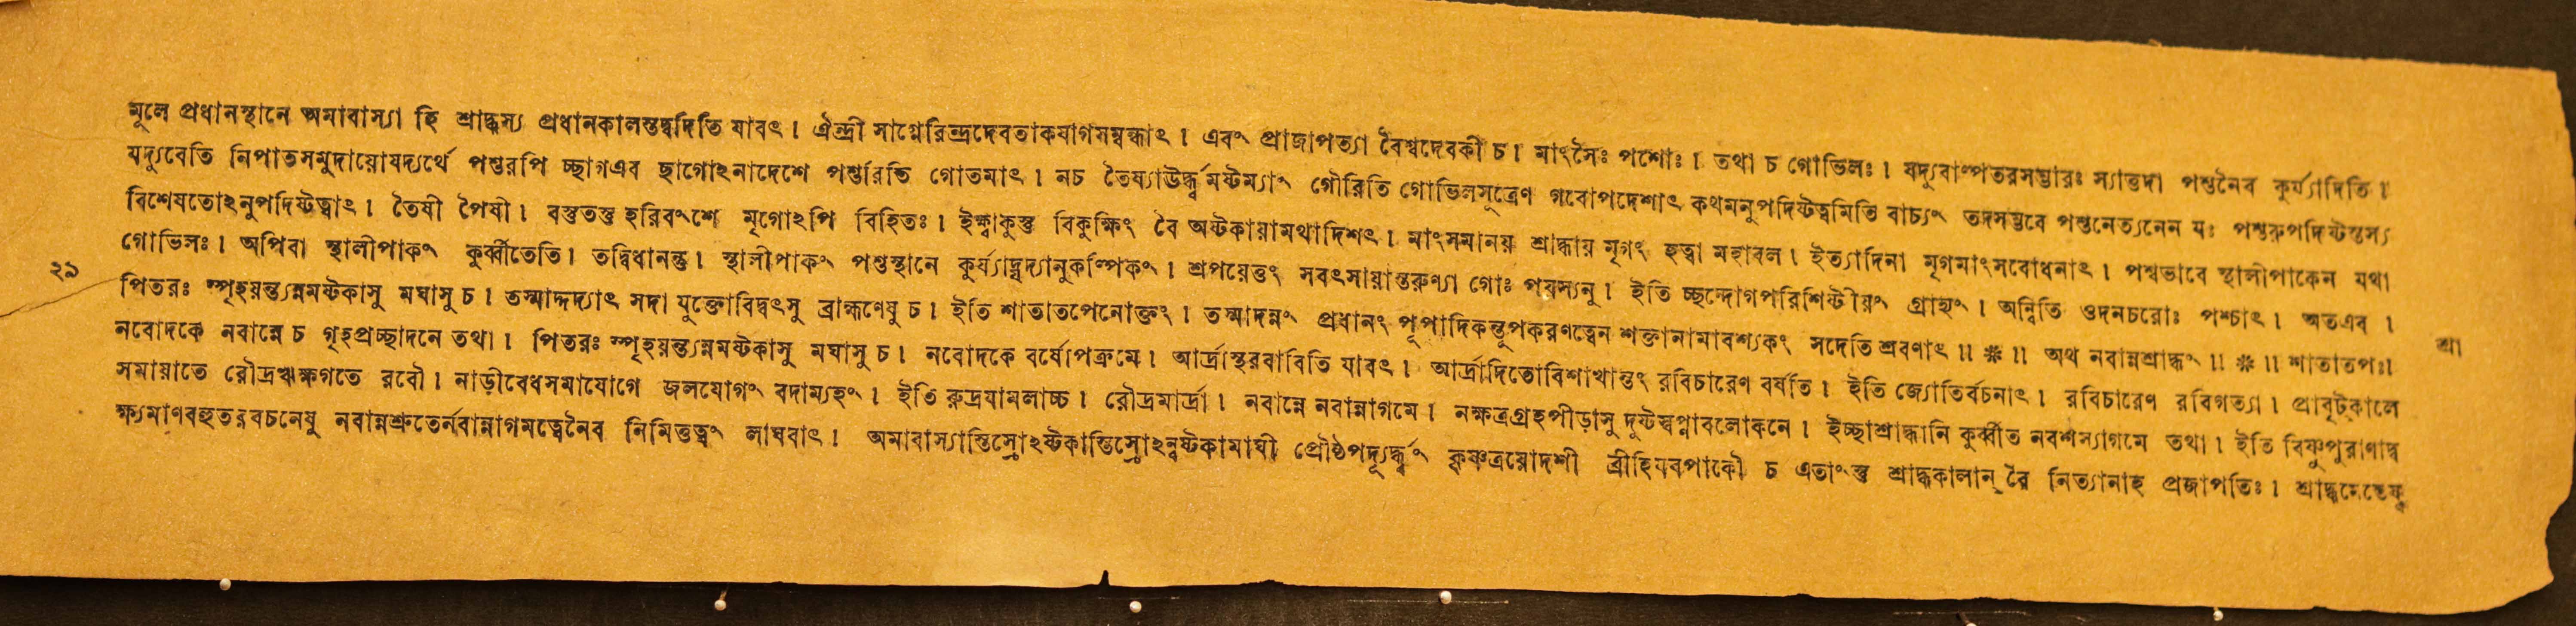 মূলে প্রধানস্থানে অমাবাস্যা হি শ্রাদ্ধস্য প্রধানকালস্তদ্বদিতি যাবৎ। ঐন্দ্রী সাগ্নেরিন্দ্রদেবতাকযাগসম্বন্ধাৎ। এবং প্রাজাপত্যা বৈশ্বদেবকী চ। মাংসৈঃ পশোঃ। তথা চ গোভিলঃ। যদ্যুবাল্পতরসম্ভারঃ স্যাত্তদা পশুনৈব কুর্য্যাদিতি।
যদ্যুবেতি নিপাতসমুদায়োযদ্যর্থে পশুরপি চ্ছাগএব ছাগোঽনাদেশে পশুরিতি গোতমাৎ। নচ তৈষ্যাঊর্দ্ধ্বমষ্টম্যাং গৌরিতি গোভিলসূত্রেণ গবোপদেশাৎ কথমনুপদিষ্টত্বমিতি বাচ্যং তদসম্ভবে পশুনেত্যনেন যঃ পশুরুপদিষ্টস্তস্য
বিশেষতোঽনুপদিষ্টত্বাৎ। তৈষী পৈষী। বস্তুতস্তু হরিবংশে মৃগোঽপি বিহিতঃ। ইক্ষ্বাকুস্তু বিকুক্ষিং বৈ অষ্টকায়ামথাদিশৎ। মাংসমানয় শ্রাদ্ধায় মৃগং হত্বা মহাবল। ইত্যাদিনা মৃগমাংসবোধনাৎ। পশ্বভাবে স্থালীপাকেন যথা
গোভিলঃ। অপিবা স্থালীপাকং কুর্ব্বীতেতি। তদ্বিধানন্তু। স্থালীপাকং পশুস্থানে কুর্য্যাদ্যদ্যানুকল্পিকং। শ্রপয়েত্তং সবৎসায়াস্তরুণ্যা গোঃ পয়স্যনু। ইতি চ্ছন্দোগপরিশিষ্টীয়ং গ্রাহ্যং। অন্বিতি ওদনচরোঃ পশ্চাৎ। অতএব।
২১ পিতরঃ স্পৃহয়ন্ত্যন্নমষ্টকাসু মঘাসু চ। তস্মাদ্দদ্যাৎ সদা যুক্তোবিদ্বৎসু ব্রাহ্মণেষু চ। ইতি শাতাতপেনোক্তং। তস্মাদন্নং প্রধানং পূপাদিকন্তূপকরণত্বেন শক্তানামাবশ্যকং সদেতি শ্রবণাৎ॥ ※ ॥ অথ নবান্নশ্রাদ্ধং॥ ※ ॥ শাতাতপঃ। শ্রা
নবোদকে নবান্নে চ গৃহপ্রচ্ছাদনে তথা। পিতরঃ স্পৃহয়ন্ত্যন্নমষ্টকাসু মঘাসু চ। নবোদকে বর্ষোপক্রমে। আর্দ্রাস্থরবাবিতি যাবৎ। আর্দ্রাদিতোবিশাখান্তং রবিচারেণ বর্ষতি। ইতি জ্যোতির্বচনাৎ। রবিচারেণ রবিগত্যা। প্রাবৃট্কালে
সমায়াতে রৌদ্রঋক্ষগতে রবৌ। নাড়ীবেধসমাযোগে জলযোগং বদাম্যহং। ইতি রুদ্রযামলাচ্চ। রৌদ্রমার্দ্রা। নবান্নে নবান্নাগমে। নক্ষত্রগ্রহপীড়াসু দুষ্টস্বপ্নাবলোকনে। ইচ্ছাশ্রাদ্ধানি কুর্ব্বীত নবশস্যাগমে তথা। ইতি বিষ্ণুপুরাণাদ্ব
ক্ষ্যমাণবহুতরবচনেষু নবান্নশ্রুতের্নবান্নাগমত্বেনৈব নিমিত্তত্বং লাঘবাৎ। অমাবাস্যাস্তিস্রোঽষ্টকাস্তিস্রোঽন্বষ্টকামাঘী প্রৌষ্ঠপদ্যূর্দ্ধ্বং কৃষ্ণত্রয়োদশী ব্রীহিযবপাকৌ চ এতাংস্তু শ্রাদ্ধকালান্ বৈ নিত্যানাহ প্রজাপতিঃ।